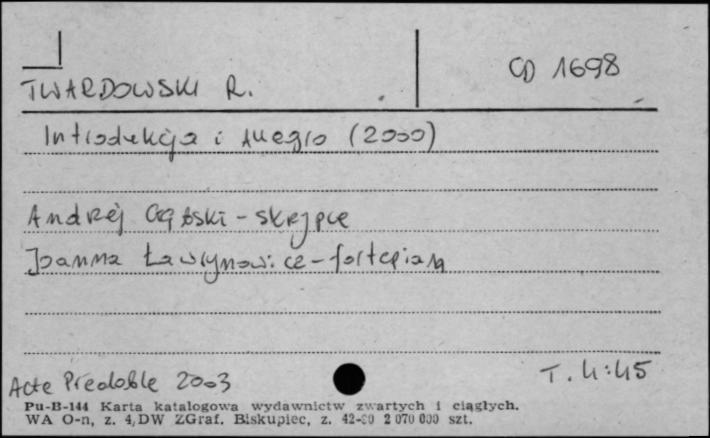 CD 1698
TWARDOWSKI R.
Introdukcja i Allegro (2000)
Andrzej Gębski - skrzypce
Joanna Ławrynowicz - fortepian
Acte Préalable 2003
T. 4:45
Pu-B-144 Karta katalogowa wydawnictw zwartych i ciągłych.
WA O-n, z. 4, DW ZGraf. Biskupiec, z. 42-80 2 070 000 szt.